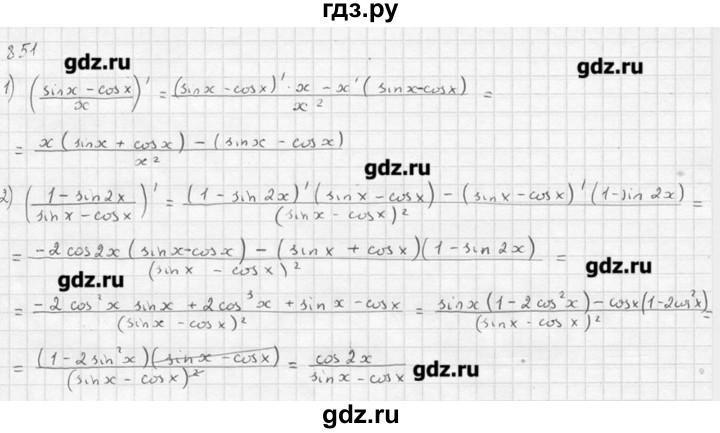 гдз.ру
851
gdz.ru
gdz.ru
1) ((sinx - cosx)/x)' = ((sinx - cosx)'·x - x'(sinx-cosx))/x² =
= (x(sinx + cosx) - (sinx - cosx))/x²
gdz.ru
2) ((1 - sin2x)/(sinx - cosx))' = ((1 - sin 2x)'(sinx - cosx) - (sinx - cosx)'(1-sin 2x))/(sinx - cosx)² =
= (-2cos2x(sinx-cosx) - (sinx + cosx)(1 - sin2x))/(sinx - cosx)² =
gdz.ru
gdz.ru
= (-2cos²x sinx + 2cos³x + sinx - cosx)/(sinx - cosx)² = (sinx(1-2cos²x) - cosx(1-2cos²x))/(sinx - cosx)² =
= ((1 - 2sin²x)(sinx - cosx))/(sinx - cosx)² = cos2x/(sinx - cosx)
gdz.ru
gdz.ru